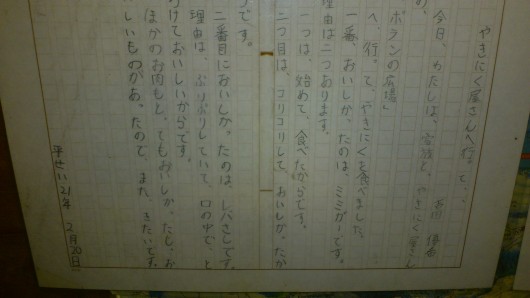 やきにく屋さんへ行って、
今日、わたしは、家族と、やきにく屋さん
の、
ポランの広場」
へ、行って、やきにくを食べました。
一番、おいしかったのは、ミミガーです。
理由は二つあります。
一つは、始めて、食べたからです。
二つ目は、コリコリして、おいしかったか
うです。
二番目においしかったのは、レバさしです。
理由は、ぷりぷりしていて、口の中で、と
けておいしいからです。
ほかのお肉もとてもおいしかったし、お
しいものがあったので、また、きたいです。
平せい21年 2月20日